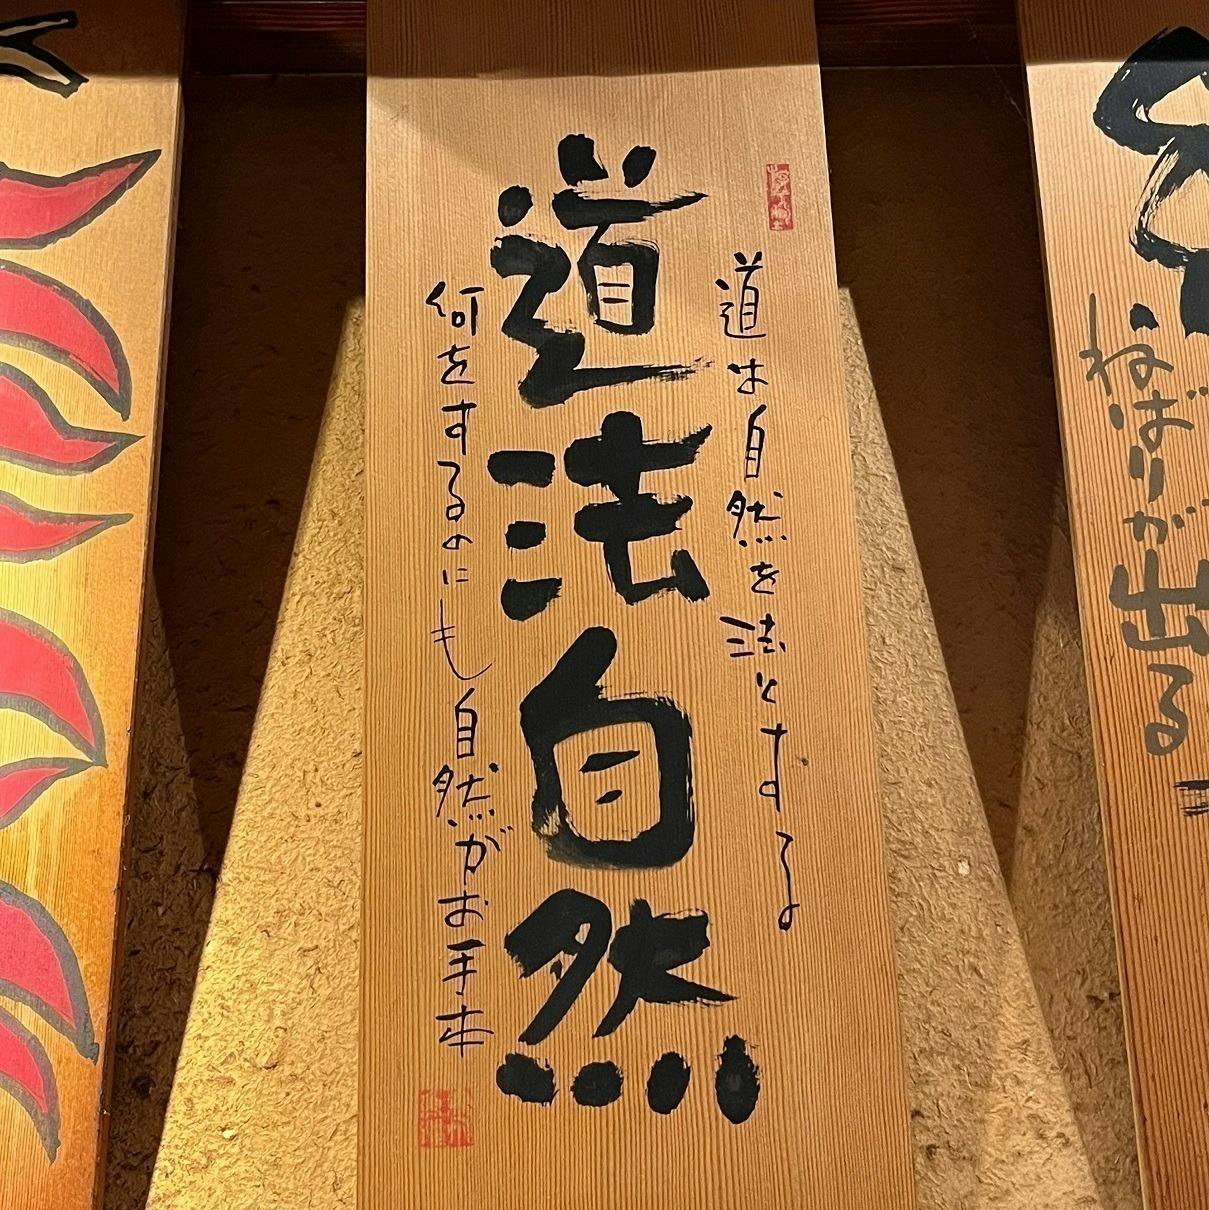 ねばりが出る
道は自然を法とする
道法自然
何をするのにも自然がお手本